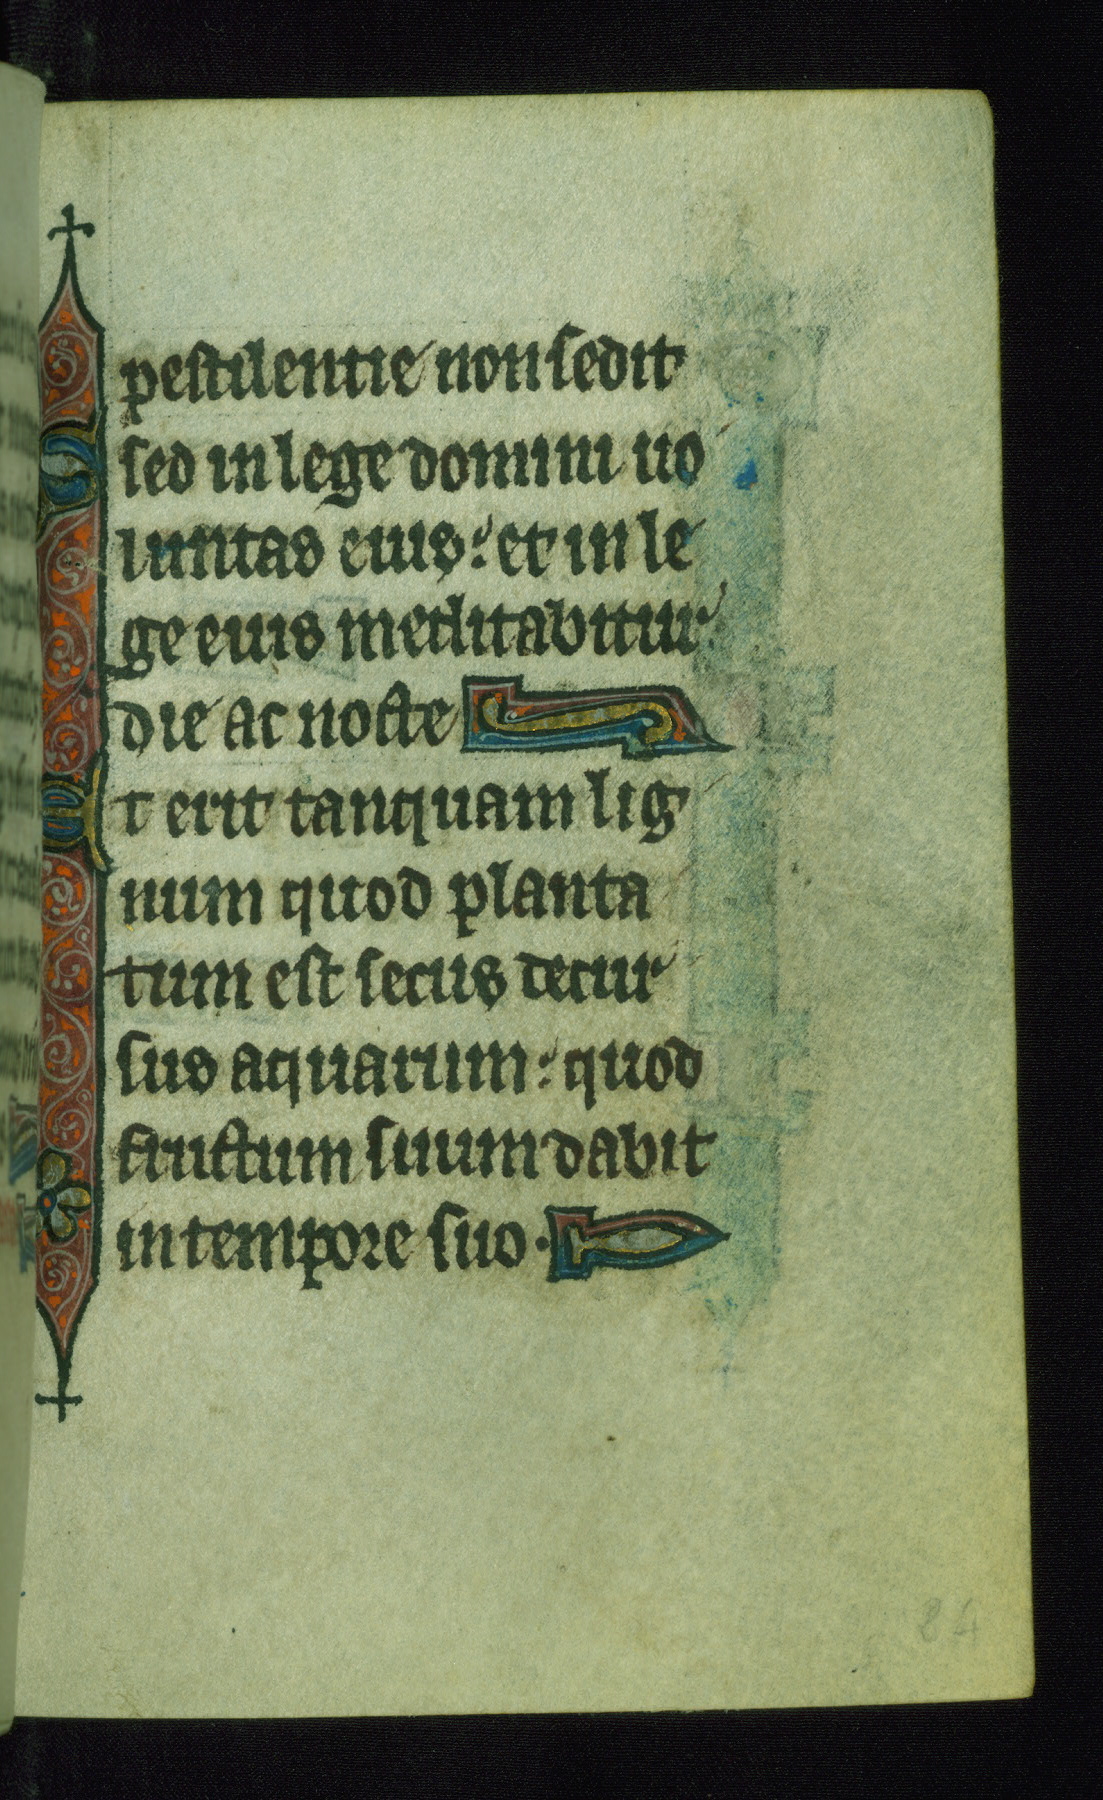 pestilentie non sedit
S sed in lege domini uo
luntas eius: et in le
ge euis meditabitur
die ac nocte
E t erit tanquam lig
num quod planta
tum est secus decur
sus aquarum: quod
fructum suum dabit
in tempore suo.
84